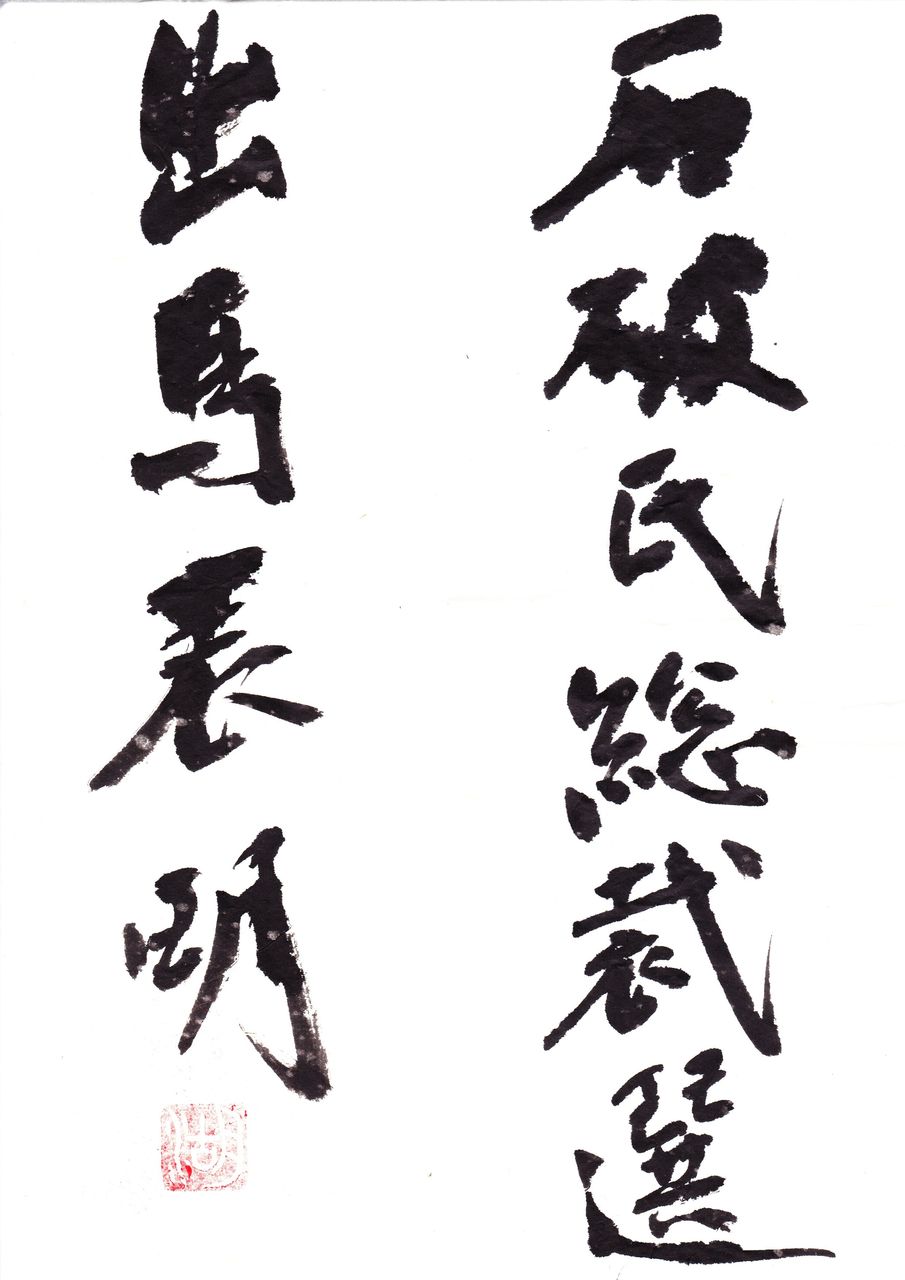 石破氏総裁選
出馬表明